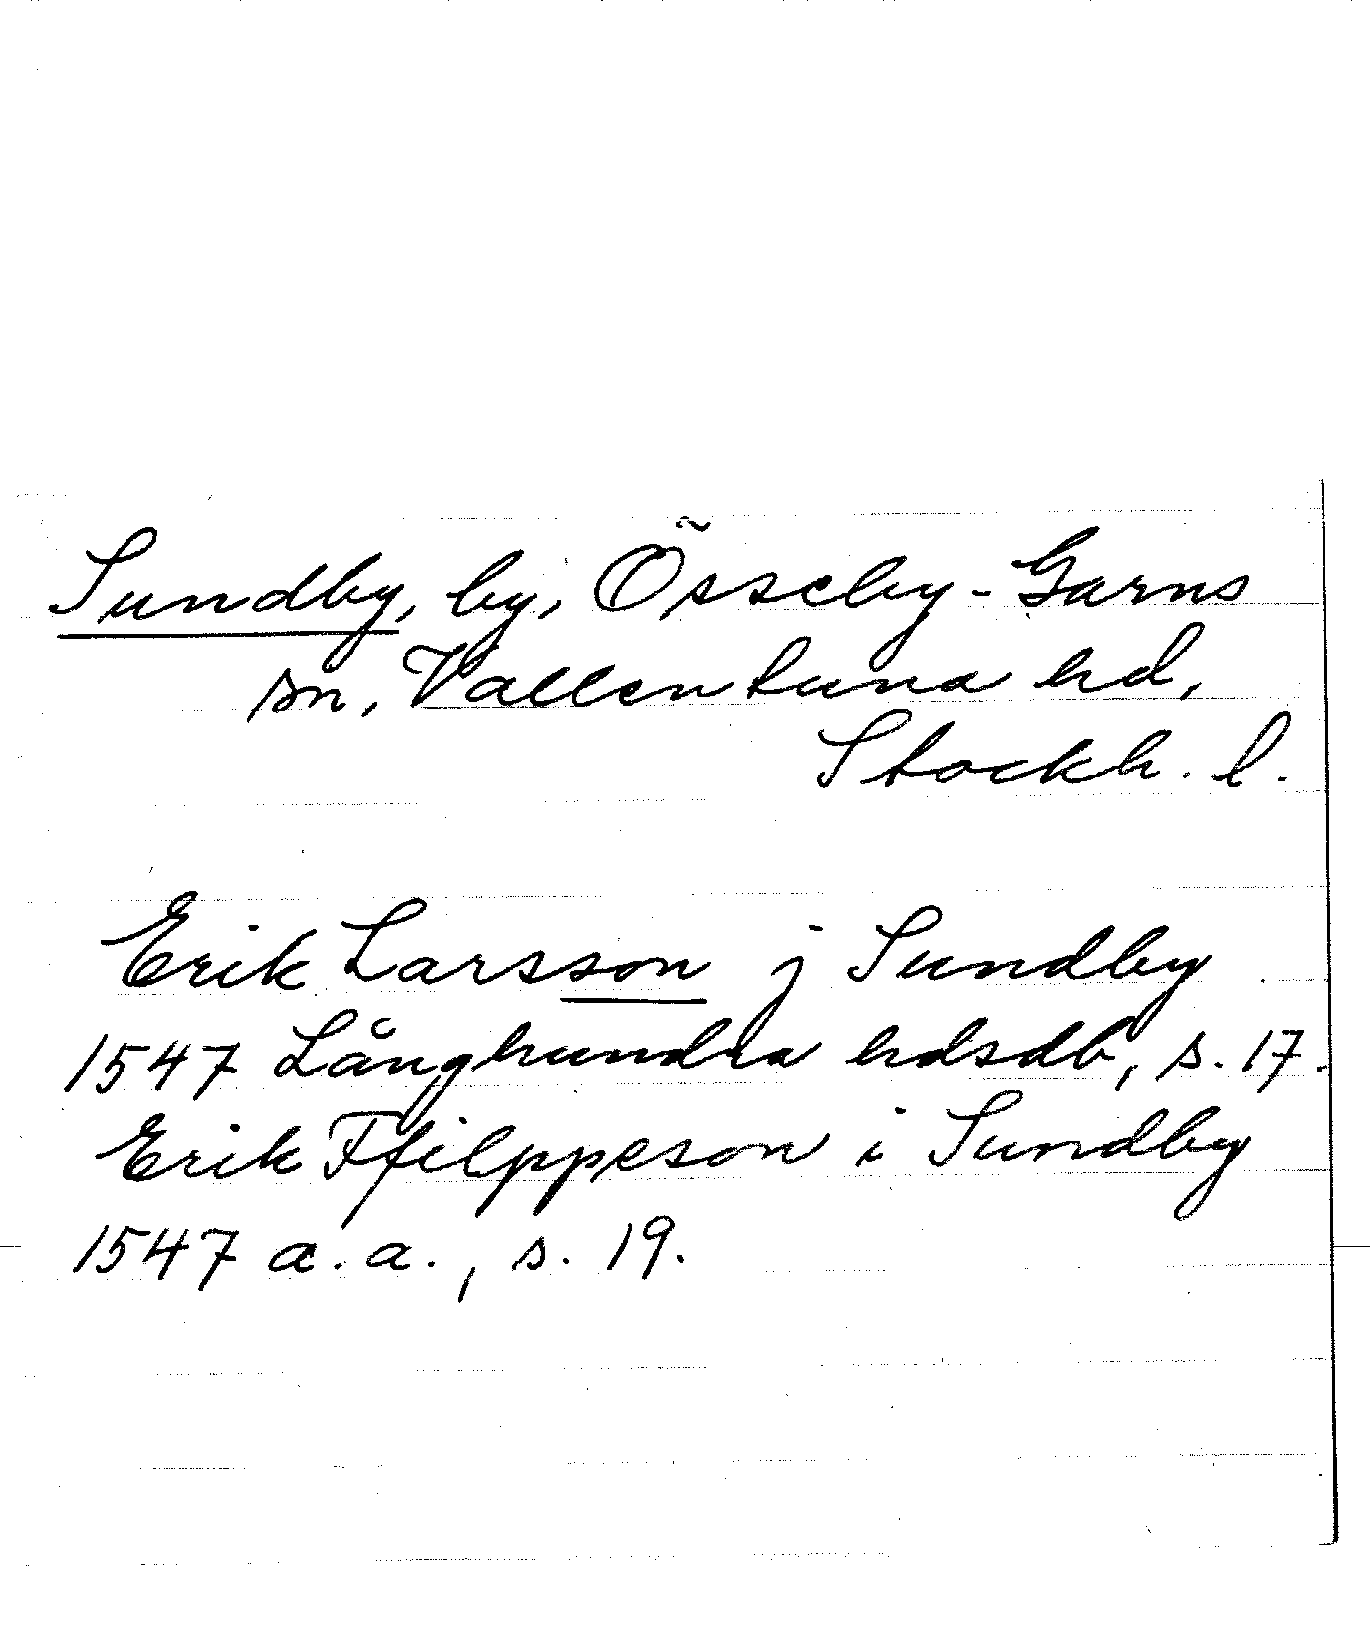 Sundby, by, Össeby-Garns
sn, Vallentuna hd,
Stockh. l.
Erik Larsson j Sundby
1547 Långhundra hdsdb, s. 17.
Erik Ffilppeson i Sundby
1547 a. a., s. 19.